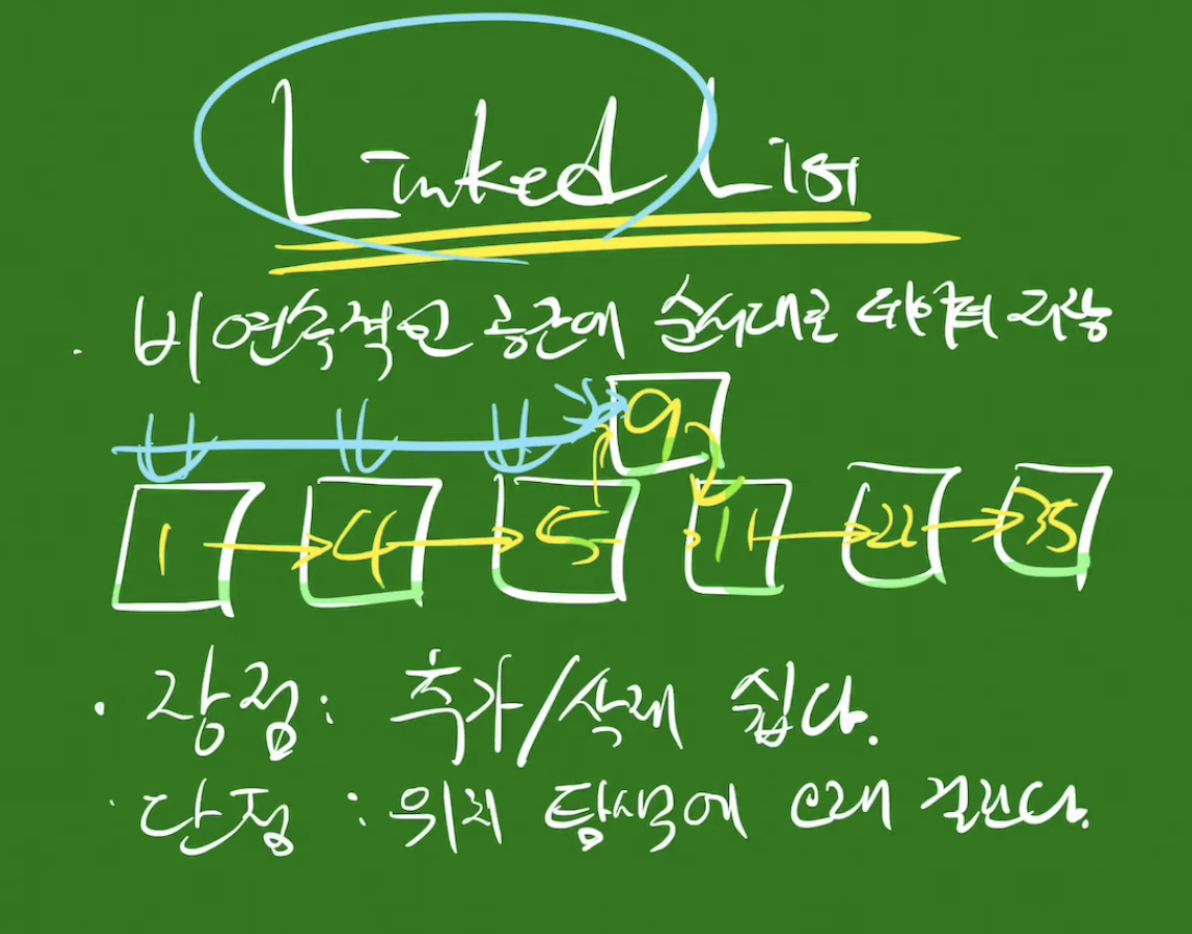 Linked List
· 비연속적인 공간에 순서대로 데이터 저장
9
1 4 5 11 22 35
· 장점: 추가/삭제 쉽다.
· 단점: 위치 탐색에 오래 걸린다.